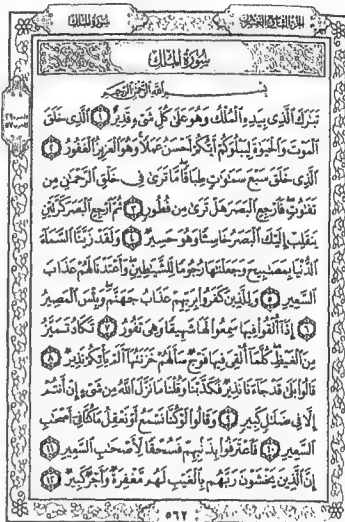 سورة الملك
سورة الملك
بسم الله الرحمن الرحيم
تبرك الذي بيده الملك وهو على كل شيء قدير ١ الذي خلق
الموت والحيوة ليبلوكم أيكم أحسن عملا وهو العزيز الغفور ٢
الذي خلق سبع سموت طباقا ما ترى في خلق الرحمن من
تفوت فارجع البصر هل ترى من فطور ٣ ثم ارجع البصر كرتين
ينقلب إليك البصر خاسئا وهو حسير ٤ ولقد زينا السماء
الدنيا بمصبيح وجعلنها رجوما للشيطين وأعتدنا لهم عذاب
السعير ٥ وللذين كفروا بربهم عذاب جهنم وبئس المصير
٦ إذا ألقوا فيها سمعوا لها شهيقا وهي تفور ٧ تكاد تميز
من الغيظ كلما ألقي فيها فوج سألهم خزنتها ألم يأتكم نذير ٨
قالوا بلى قد جاءنا نذير فكذبنا وقلنا ما نزل الله من شيء إن أنتم
إلا في ضلل كبير ٩ وقالوا لو كنا نسمع أو نعقل ما كنا في أصحب
السعير ١٠ فاعترفوا بذنبهم فسحقا لأصحب السعير ١١
إن الذين يخشون ربهم بالغيب لهم مغفرة وأجر كبير ١٢
٥٦٢